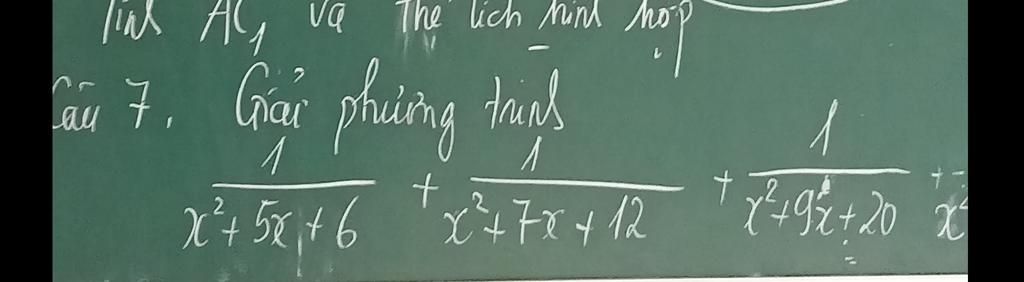 Tính AC₁ và Thể tích hình hộp
Câu 7. Giải phương trình
1 1 1
x²+5x+6 + x²+7x+12 + x²+9x+20 + x²